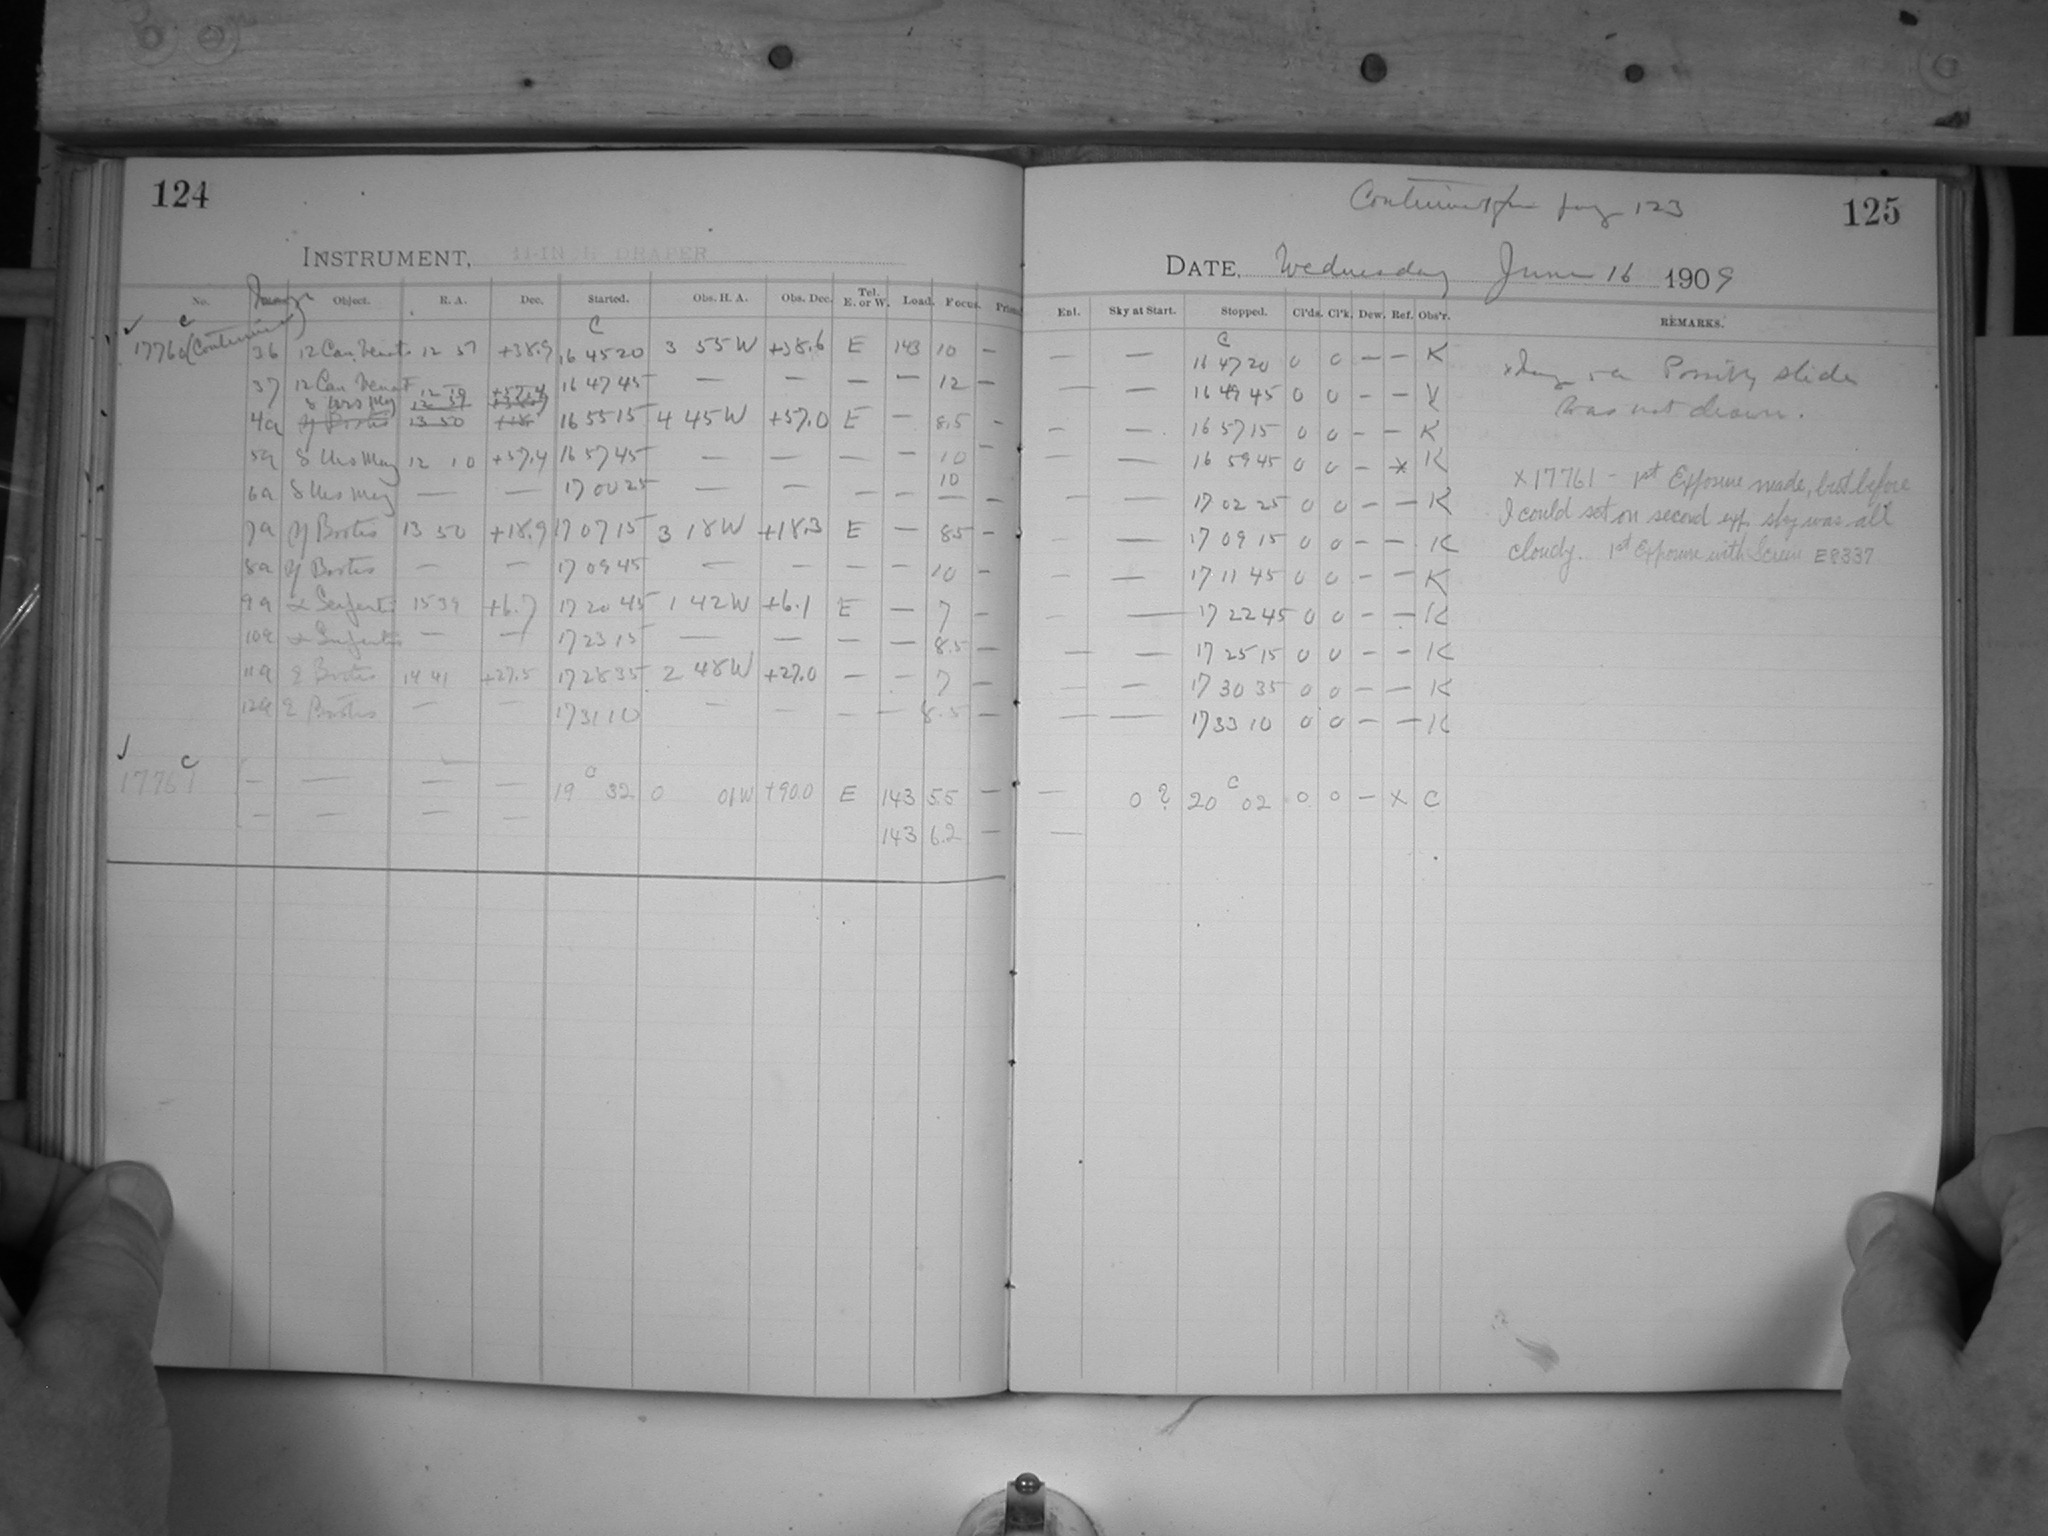 124
INSTRUMENT, 11-INCH DRAPER
No. Image Object. R. A. Dec. Started. Obs. H. A. Obs. Dec. Tel. E. or W. Load. Focus. Prism
17760 (Continued) 36 12 Can. Venat 12 51 +38.9 16 45 20 3 55 W +38.6 E 143 10 —
37 12 Can Venat — — 16 47 45 — — — — 12 —
4a η Bootis 13 50 +18.
δ Urs Maj 16 55 15 4 45 W +57.0 E — 8.5 -
5a δ Urs Maj 12 10 +57.4 16 57 45 — — — — 10 —
6a δ Urs Maj — — 17 00 25 — — — — 10 —
7a η Bootis 13 50 +18.9 17 07 15 3 18 W +18.3 E — 8.5 —
8a η Bootis — — 17 09 45 — — — — 10 —
9a α Serpentis 15 39 +6.7 17 20 45 1 42 W +6.1 E — 7 —
10a α Serpentis — — 17 23 15 — — — — 8.5 —
11a ε Bootis 14 41 +27.5 17 28 35 2 48 W +27.0 — — 7 —
12a ε Bootis — — 17 31 10 — — — — 8.5 —
17761 C — — — — 19 C 32 0 01 W +90.0 E 143 5.5 —
— — — — 143 6.2 —
Continued from page 123
125
DATE, Wednesday June 16 1909
Enl. Sky at Start. Stopped. Cl'ds. Cl'k. Dew. Ref. Obs'r. REMARKS.
— — C 16 47 20 0 0 — — K
— — 16 49 45 0 0 — — K
— — 16 57 15 0 0 — — K
— — 16 59 45 0 0 — * K
— — 17 02 25 0 0 — — K
— — 17 09 15 0 0 — — K
— — 17 11 45 0 0 — — K
— — 17 22 45 0 0 — — K
— — 17 25 15 0 0 — — K
— — 17 30 35 0 0 — — K
— — 17 33 10 0 0 — — K
— 0 ? 20 C 02 0 0 — x C
—
x Image 5a Possibly slide
was not drawn.
x 17761 – 1st Exposure made, but before
I could set on second exp. sky was all
cloudy. 1st Exposure with Screen E8337